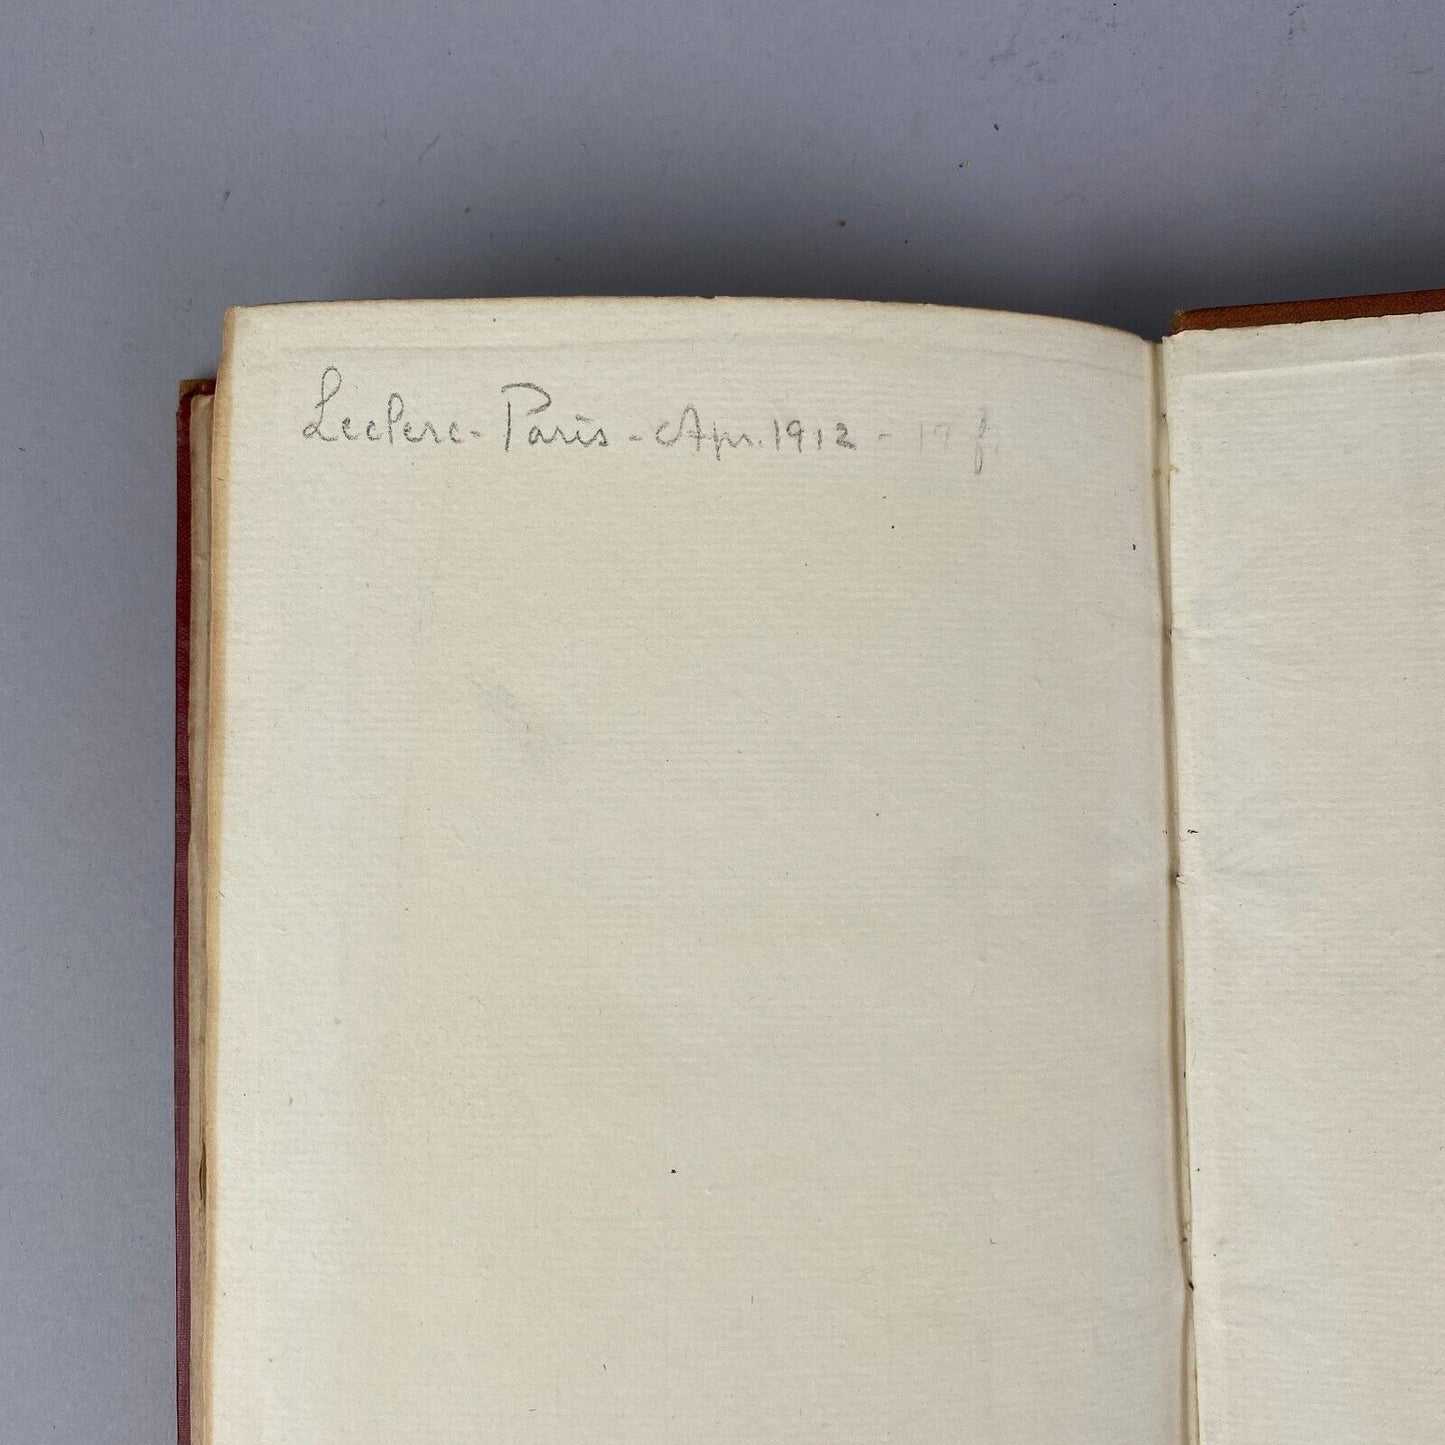 Leclerc - Paris - Apr. 1912 - 19 f